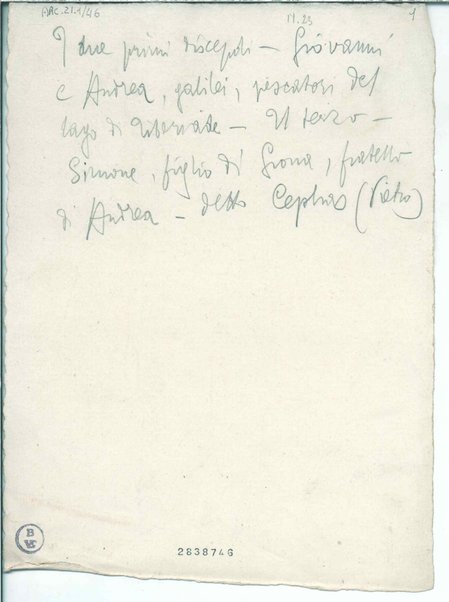 ARC.21.I/46
N.23
1
I due primi discepoli - Giovanni
e Andrea, galilei, pescatori del
lago di Tiberiade - Il terzo -
Simone, figlio di Giona, fratello
di Andrea - detto Cephas (Pietro)
2838746